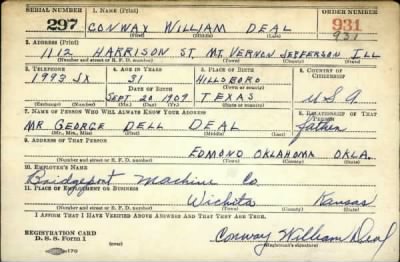 SERIAL NUMBER 1. NAME (Print) ORDER NUMBER
297 CONWAY WILLIAM DEAL 931
931
(First) (Middle) (Last)
2. ADDRESS (Print)
1112 HARRISON ST. MT. VERNON JEFFERSON ILL
(Number and street or R. F. D. number) (Town) (County) (State)
3. TELEPHONE 4. AGE IN YEARS 5. PLACE OF BIRTH 6. COUNTRY OF CITIZENSHIP
1993 JX 31 HILLSBORO
DATE OF BIRTH (Town or county)
SEPT. 20 1909 TEXAS U.S.A
(Exchange) (Number) (Mo.) (Day) (Yr.) (State or country)
7. NAME OF PERSON WHO WILL ALWAYS KNOW YOUR ADDRESS 8. RELATIONSHIP OF THAT PERSON
MR GEORGE DELL DEAL father
(Mr., Mrs., Miss) (First) (Middle) (Last)
9. ADDRESS OF THAT PERSON
EDMOND OKLAHOMA OKLA.
(Number and street or R. F. D. number) (Town) (County) (State)
10. EMPLOYER'S NAME
Bridgeport Machine Co.
11. PLACE OF EMPLOYMENT OR BUSINESS
Wichita Kansas
(Number and street or R. F. D. number) (Town) (County) (State)
I AFFIRM THAT I HAVE VERIFIED ABOVE ANSWERS AND THAT THEY ARE TRUE.
REGISTRATION CARD
D. S. S. Form 1 Conway William Deal
(over) (Registrant's signature)